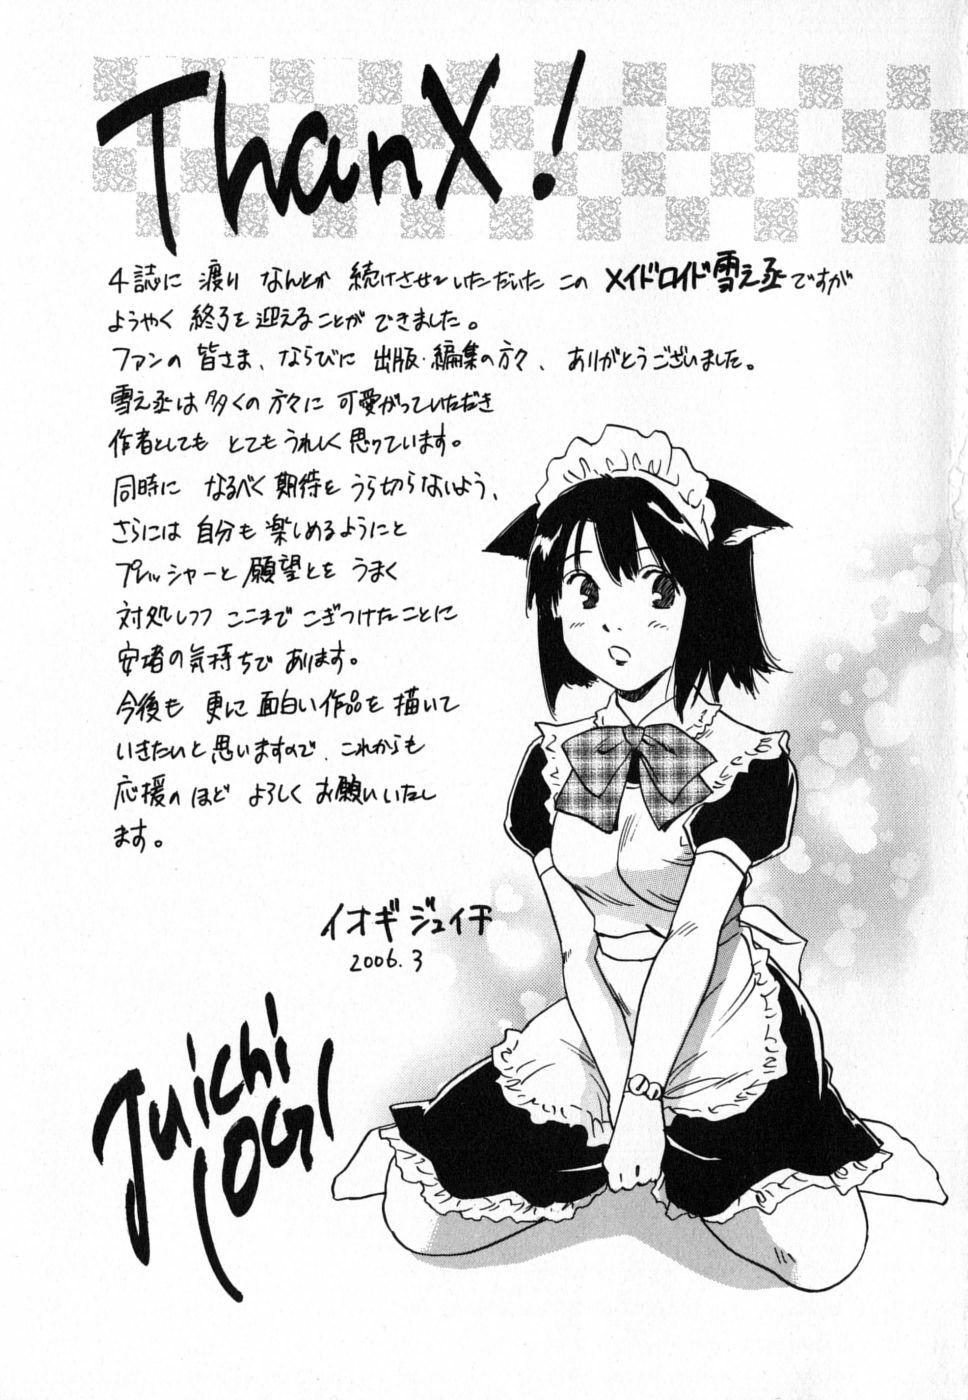 ThanX!
4誌に渡り なんとか 続けさせていただいた この メイドロイド雪之丞ですが
ようやく 終了を迎えることが できました。
ファンの 皆さま、ならびに 出版・編集の方々、ありがとうございました。
雪之丞は多くの 方々に 可愛がっていただき
作者としても とてもうれしく思っています。
同時に なるべく期待を うら切らないよう、
さらには 自分も 楽しめるようにと
プレッシャーと 願望とを うまく
対処しつつ ここまで こぎつけたことに
安堵の気持ちで あります。
今後も 更に 面白い作品を 描いて
いきたいと 思いますので、これからも
応援のほど よろしく お願いいたし
ます。
イオギ ジュイチ
2006.3
Juichi
IOGI